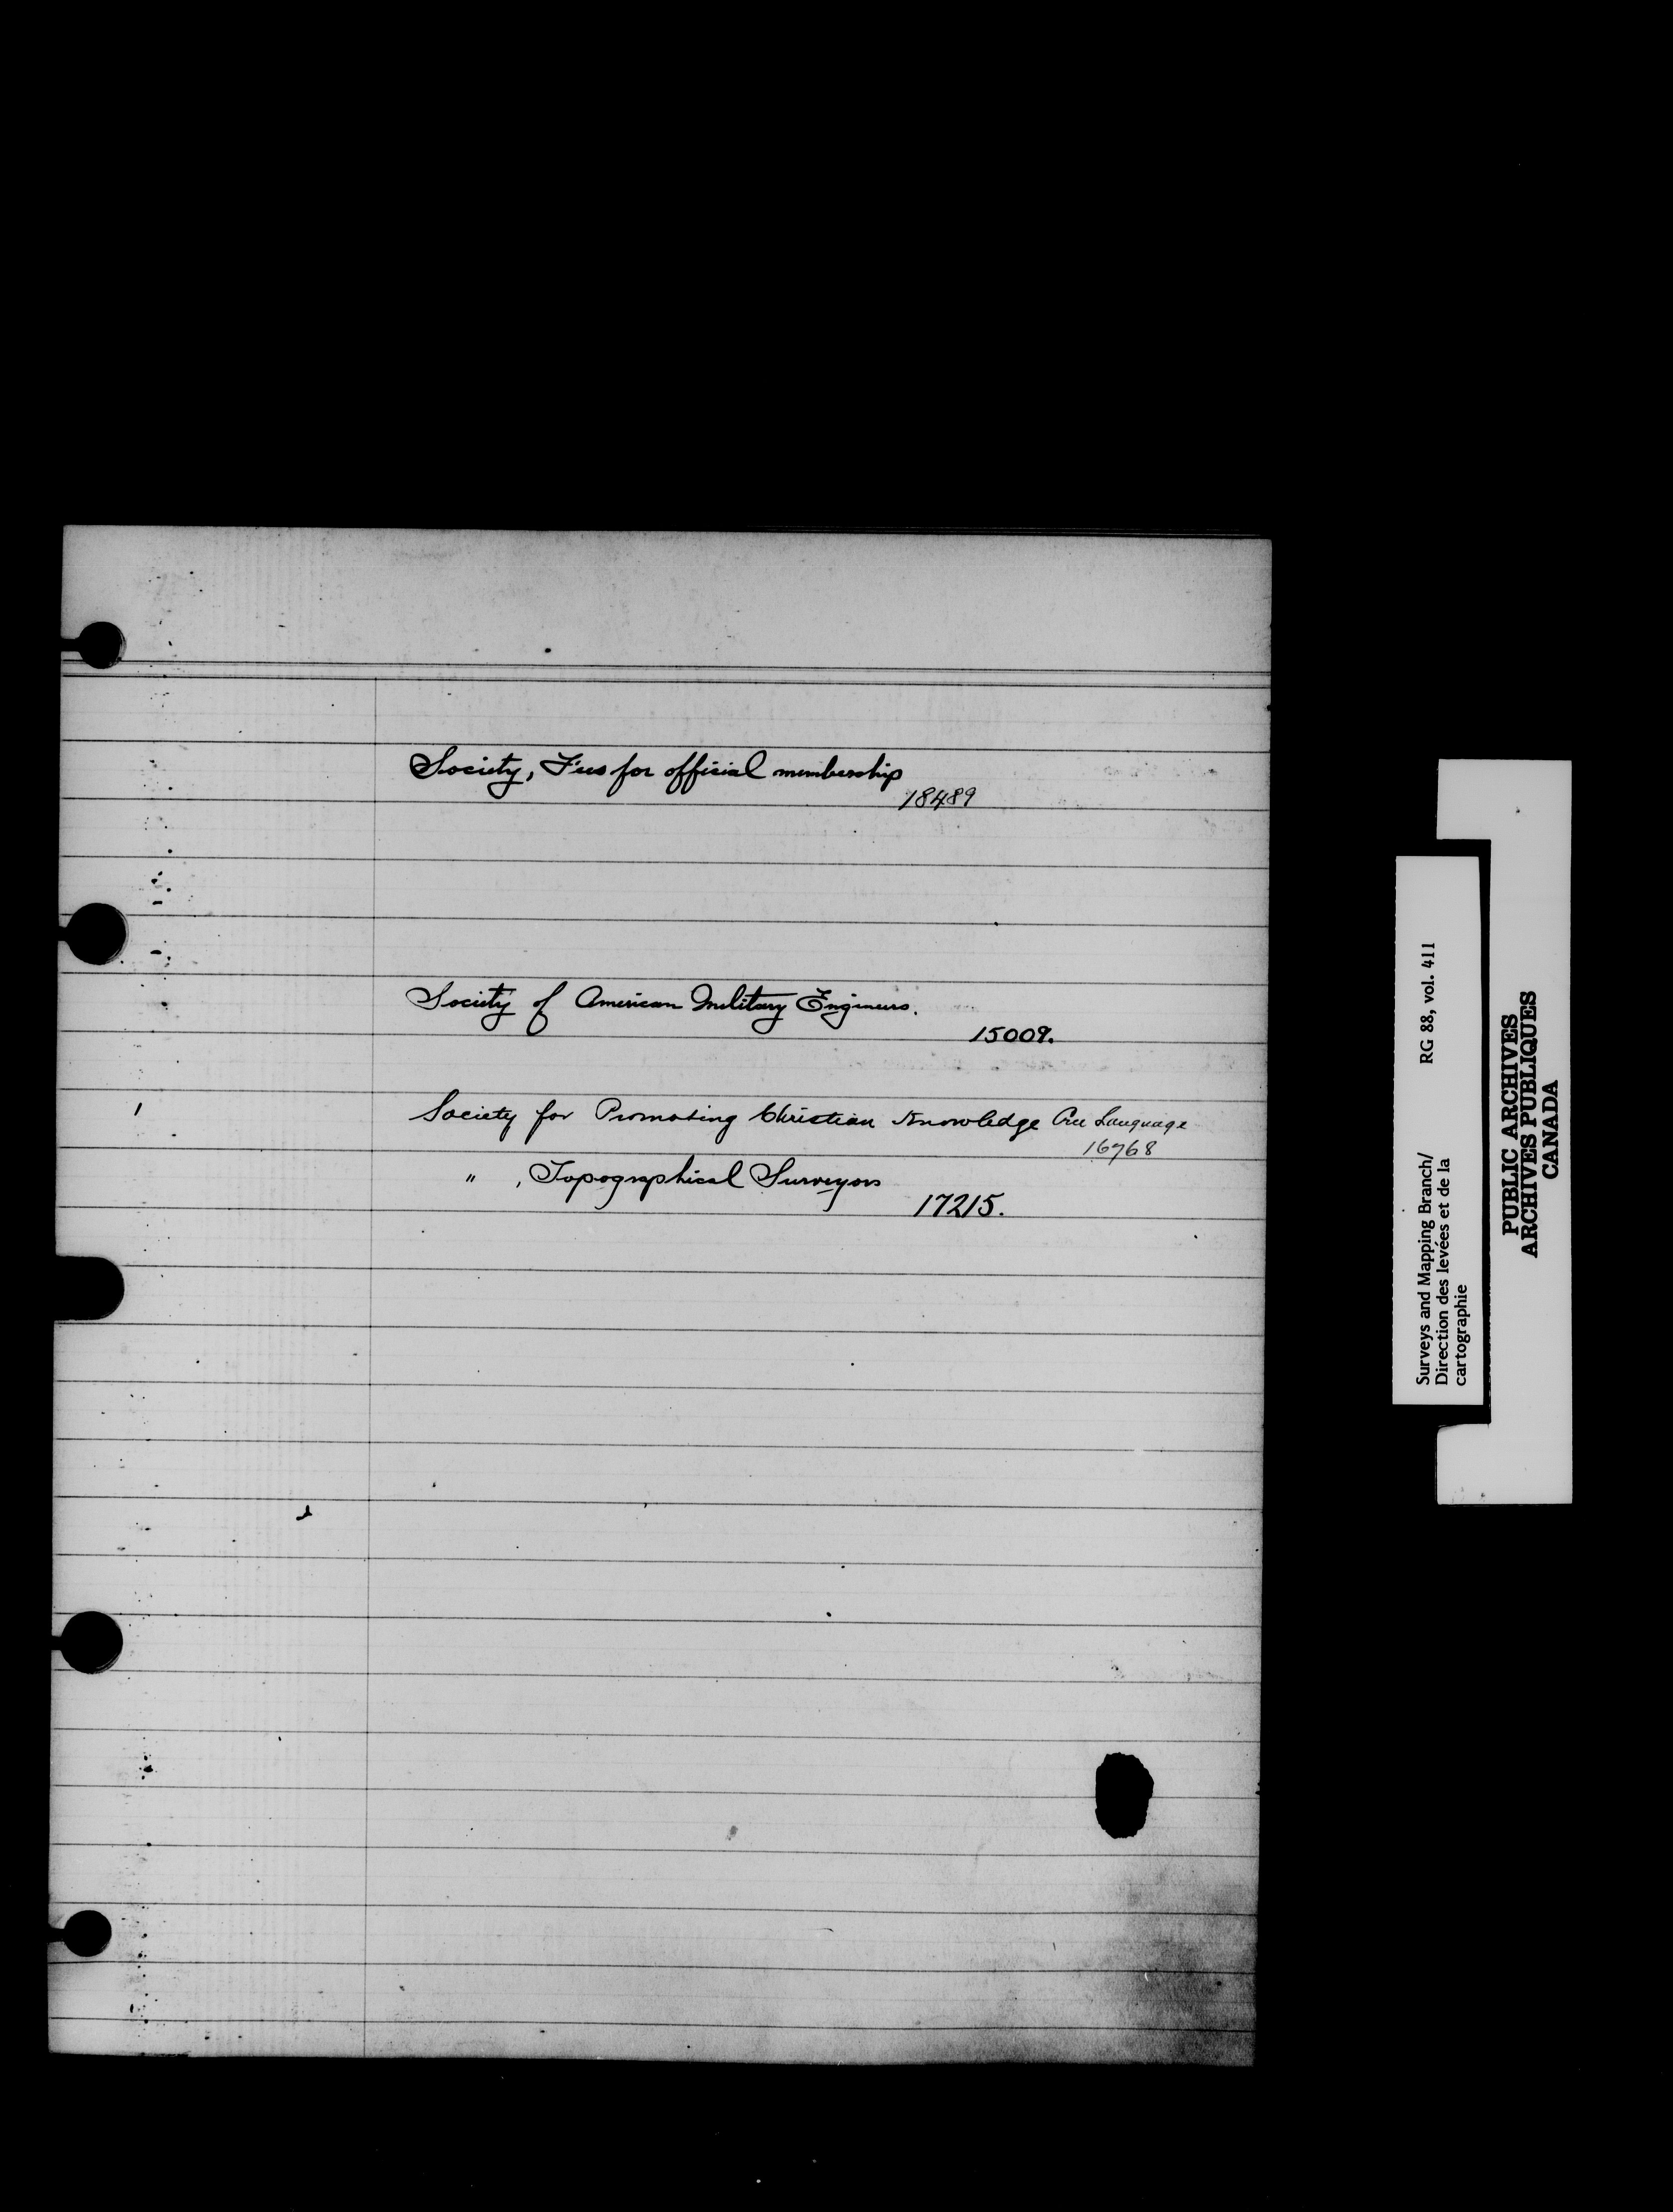 Society, Fees for official membership
18489
Society of American Military Engineers.
15009.
Society for Promoting Christian Knowledge Cree Language
16768
" , Topographical Surveyors
17215.
Surveys and Mapping Branch/ RG 88, vol. 411
Direction des levées et de la
cartographie
PUBLIC ARCHIVES
ARCHIVES PUBLIQUES
CANADA